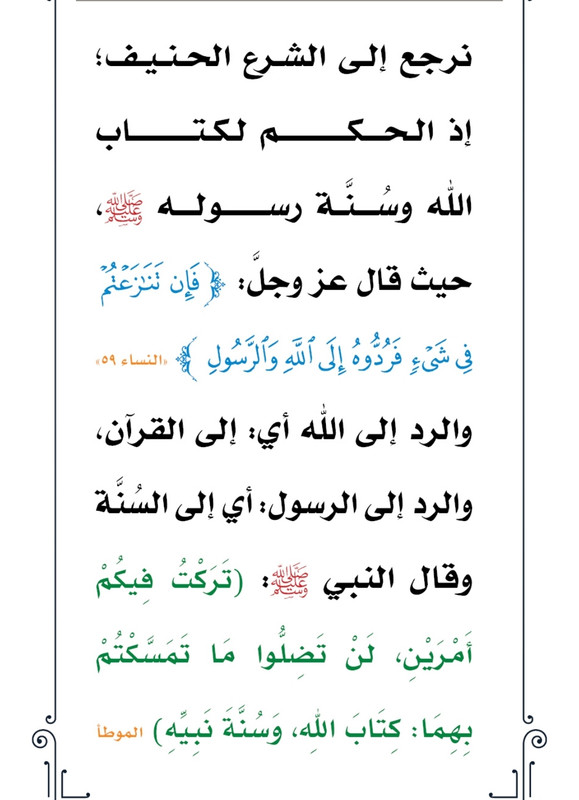 نرجع إلى الشرع الحنيف؛
إذ الحكم لكتاب
الله وسُنَّة رسوله ﷺ،
حيث قال عز وجلَّ: ﴿ فَإِن تَنَٰزَعۡتُمۡ
فِي شَيۡءٖ فَرُدُّوهُ إِلَى ٱللَّهِ وَٱلرَّسُولِ ﴾ «النساء ٥٩»
والرد إلى الله أي: إلى القرآن،
والرد إلى الرسول: أي إلى السُنَّة
وقال النبي ﷺ: (تَرَكْتُ فِيكُمْ
أَمْرَيْنِ، لَنْ تَضِلُّوا مَا تَمَسَّكْتُمْ
بِهِمَا: كِتَابَ اللهِ، وَسُنَّةَ نَبِيِّهِ) الموطأ